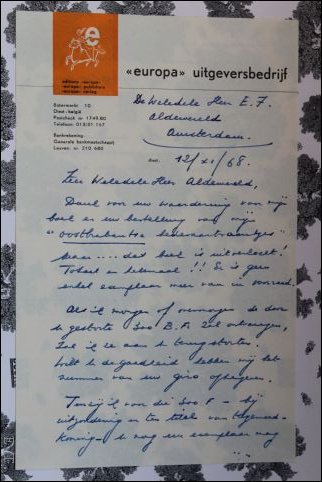 e
editions «europa»
«europa» publishers
«europa» verlag
«europa» uitgeversbedrijf
Botermarkt 10
Diest - belgië
Postcheck nr 1749.80
Telefoon: 013/31.167
Bankrekening:
Generale bankmaatschappij
Leuven nr 210.680
De Weledele Heer E. F.
Aldewereld
Amsterdam.
diest, 12/XI/68.
Zeer Weledele Heer Aldewereld,
Dank voor uw waardering van mijn
boek en uw bestelling van mijn
"oostbrabantse bedevaartvaantjes"
Maar.... dat boek is uitverkocht!
Totaal en helemaal!! Er is geen
enkel exemplaar meer van in voorraad.
Als ik morgen of overmorgen de door
U gestorte 300 B.F. zal ontvangen,
zal ik ze aan U terugstorten.
Wilt U de goedheid hebben mij het
nummer van uw giro opgeven.
Tenzij U voor die 300 F - bij
uitzondering en ten titel van tegemoet-
koming - U nog een exemplaar mag